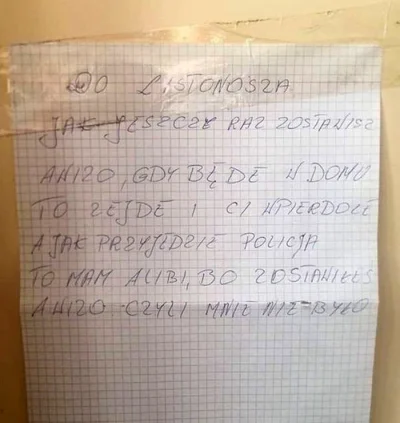 DO LISTONOSZA
JAK JESZCZE RAZ ZOSTAWISZ
AWIZO, GDY BĘDĘ W DOMU
TO ZEJDE I CI WPIERDOLE
A JAK PRZYJEDZIE POLICJA
TO MAM ALIBI, BO ZOSTAWIŁEŚ
AWIZO CZYLI MNIE NIE BYŁO